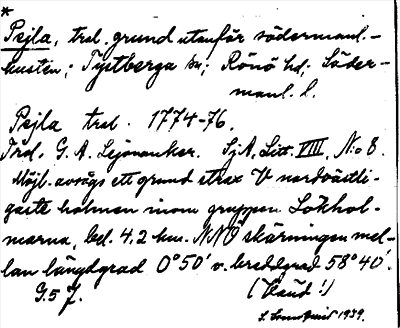 *
Pejla, trol. grund utanför södermanl.-
kusten; Tystberga sn; Rönö hd; Söder-
manl. l.
Pejla trol. 1774-76.
Förf. G. A. Lejonanker. SjA, Litt. VIII, N:o 8.
Möjl. avsågs ett grund strax V nordvästli-
gaste holmen inom gruppen Lökhol-
marna, bel. 4,2 km. NNÖ skärningen mel-
lan längdgrad 0°50' v. breddgrad 58°40'.
G. 5 J. (Vaud!)
1939.